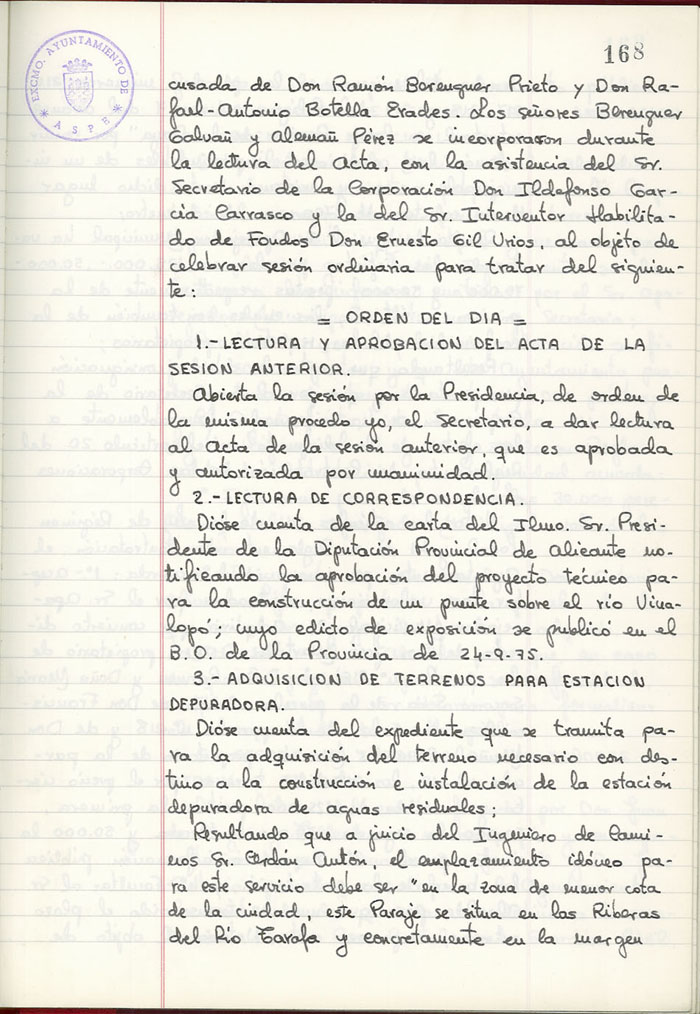 168
EXCMO. AYUNTAMIENTO DE
* ASPE *
cusada de Don Ramón Berenguer Prieto y Don Ra-
fael-Antonio Botella Erades. Los señores Berenguer
Galvañ y Alemañ Pérez se incorporaron durante
la lectura del Acta, con la asistencia del Sr.
Secretario de la Corporación Don Ildefonso Gar-
cía Carrasco y la del Sr. Interventor Habilita-
do de Fondos Don Ernesto Gil Urios, al objeto de
celebrar sesión ordinaria para tratar del siguien-
te:
= ORDEN DEL DIA =
1.- LECTURA Y APROBACION DEL ACTA DE LA
SESION ANTERIOR.
Abierta la sesión por la Presidencia, de orden de
la misma procedo yo, el Secretario, a dar lectura
al Acta de la sesión anterior, que es aprobada
y autorizada por unanimidad.
2.- LECTURA DE CORRESPONDENCIA.
Dióse cuenta de la carta del Ilmo. Sr. Presi-
dente de la Diputación Provincial de Alicante no-
tificando la aprobación del proyecto técnico pa-
ra la construcción de un puente sobre el río Vina-
lopó; cuyo edicto de exposición se publicó en el
B.O. de la Provincia de 24-9-75.
3.- ADQUISICION DE TERRENOS PARA ESTACION
DEPURADORA.
Dióse cuenta del expediente que se tramita pa-
ra la adquisición del terreno necesario con des-
tino a la construcción e instalación de la estación
depuradora de aguas residuales;
Resultando que a juicio del Ingeniero de Cami-
nos Sr. Cerdán Antón, el emplazamiento idóneo pa-
ra este servicio debe ser "en la zona de menor cota
de la ciudad, este Paraje se situa en las Riberas
del Río Tarafa y concretamente en la margen